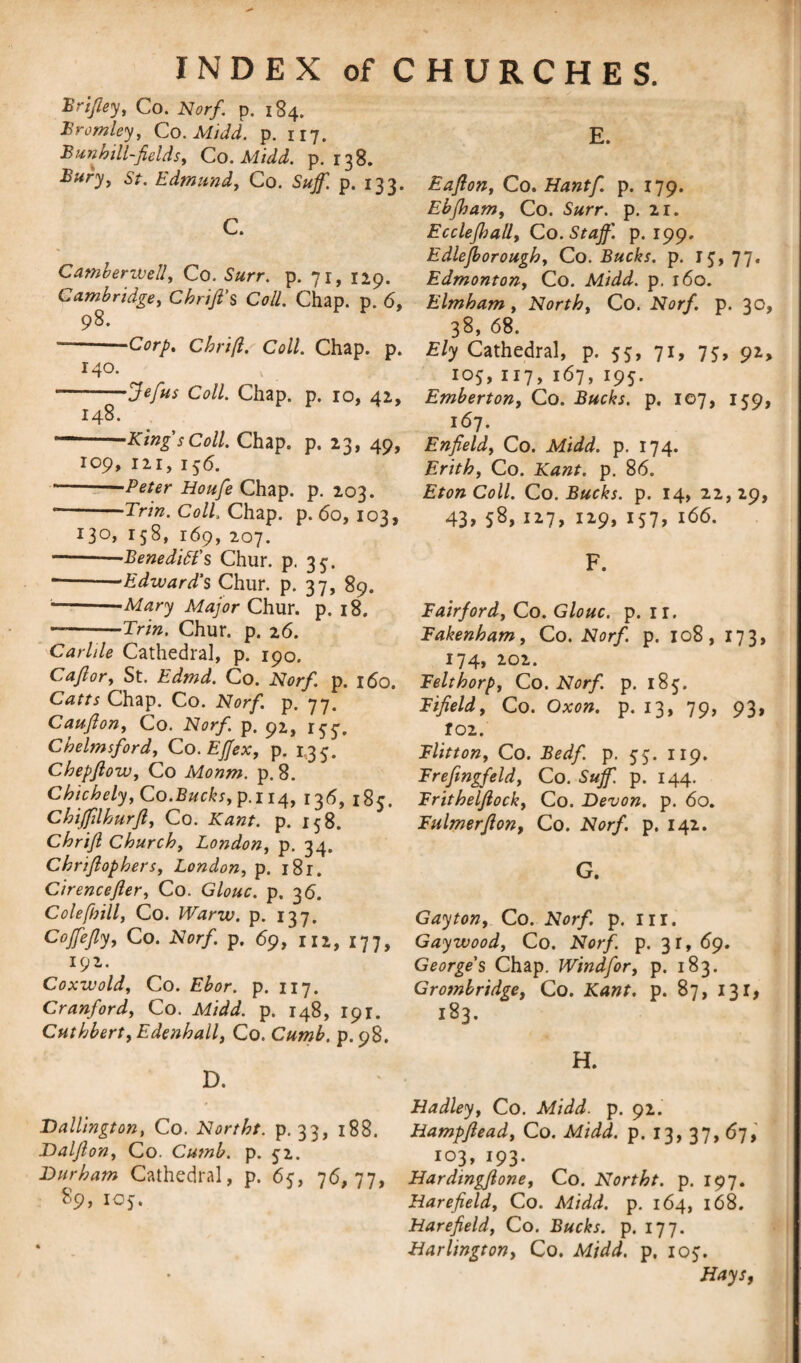 INDEX of CHURCHES.
Brisley, Co. Norf. p. 184.
Bromley, Co. Midd. p. 117.
Bunhill-fields, Co. Midd. p. 138.
Bury, St. Edmund, Co. Suff. p. 133.
C.
Camberwell, Co. Surr. p. 71, 129.
Cambridge, Christ's Coll. Chap. p. 6,
98.
———Corp. Christ. Coll. Chap. p.
140.
———Jesus Coll. Chap. p. 10, 42,
148.
———King's Coll. Chap. p. 23, 49,
109, 121, 156.
———Peter House Chap. p. 203.
———Trin. Coll. Chap. p. 60, 103,
130, 158, 169, 207.
———Benedict's Chur. p. 35.
———Edward's Chur. p. 37, 89.
———Mary Major Chur. p. 18.
———Trin. Chur. p. 26.
Carlile Cathedral, p. 190.
Castor, St. Edmd. Co. Norf. p. 160.
Catts Chap. Co. Norf. p. 77.
Causton, Co. Norf. p. 92, 155.
Chelmsford, Co. Essex, p. 135.
Chepstow, Co Monm. p. 8.
Chichely, Co. Bucks, p. 114, 136, 185.
Chissilhurst, Co. Kant. p. 158.
Christ Church, London, p. 34.
Christophers, London, p. 181.
Cirencester, Co. Glouc. p. 36.
Coleshill, Co. Warw. p. 137.
Cossesly, Co. Norf. p. 69, 112, 177,
192.
Coxwold, Co. Ebor. p. 117.
Cranford, Co. Midd. p. 148, 191.
Cuthbert, Edenhall, Co. Cumb. p. 98.
D.
Dallington, Co. Northt. p. 33, 188.
Dalston, Co. Cumb. p. 52.
Durham Cathedral, p. 65, 76, 77,
89, 105.
E.
Easton, Co. Hantf. p. 179.
Ebsham, Co. Surr. p. 21.
Eccleshall, Co. Staff. p. 199.
Edlesborough, Co. Bucks. p. 15, 77.
Edmonton, Co. Midd. p. 160.
Elmham, North, Co. Norf. p. 30,
38, 68.
Ely Cathedral, p. 55, 71, 75, 92,
105, 117, 167, 195.
Emberton, Co. Bucks. p. 107, 159,
167.
Enfield, Co. Midd. p. 174.
Erith, Co. Kant. p. 86.
Eton Coll. Co. Bucks. p. 14, 22, 29,
43, 58, 127, 129, 157, 166.
F.
Fairford, Co. Glouc. p. 11.
Fakenham, Co. Norf. p. 108, 173,
174, 202.
Felthorp, Co. Norf. p. 185.
Fifield, Co. Oxon. p. 13, 79, 93,
102.
Flitton, Co. Bedf. p. 55. 119.
Fresingfeld, Co. Suff. p. 144.
Frithelstock, Co. Devon. p. 60.
Fulmerston, Co. Norf. p. 142.
G.
Gayton, Co. Norf. p. 111.
Gaywood, Co. Norf. p. 31, 69.
George's Chap. Windsor, p. 183.
Grombridge, Co. Kant. p. 87, 131,
183.
H.
Hadley, Co. Midd. p. 92.
Hampstead, Co. Midd. p. 13, 37, 67,
103, 193.
Hardingstone, Co. Northt. p. 197.
Harefield, Co. Midd. p. 164, 168.
Harefield, Co. Bucks. p. 177.
Harlington, Co. Midd. p. 105.
Hays,